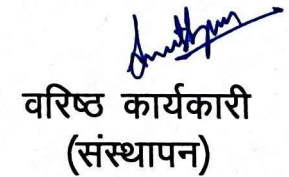 वरिष्ठ कार्यकारी
(संस्थापन)